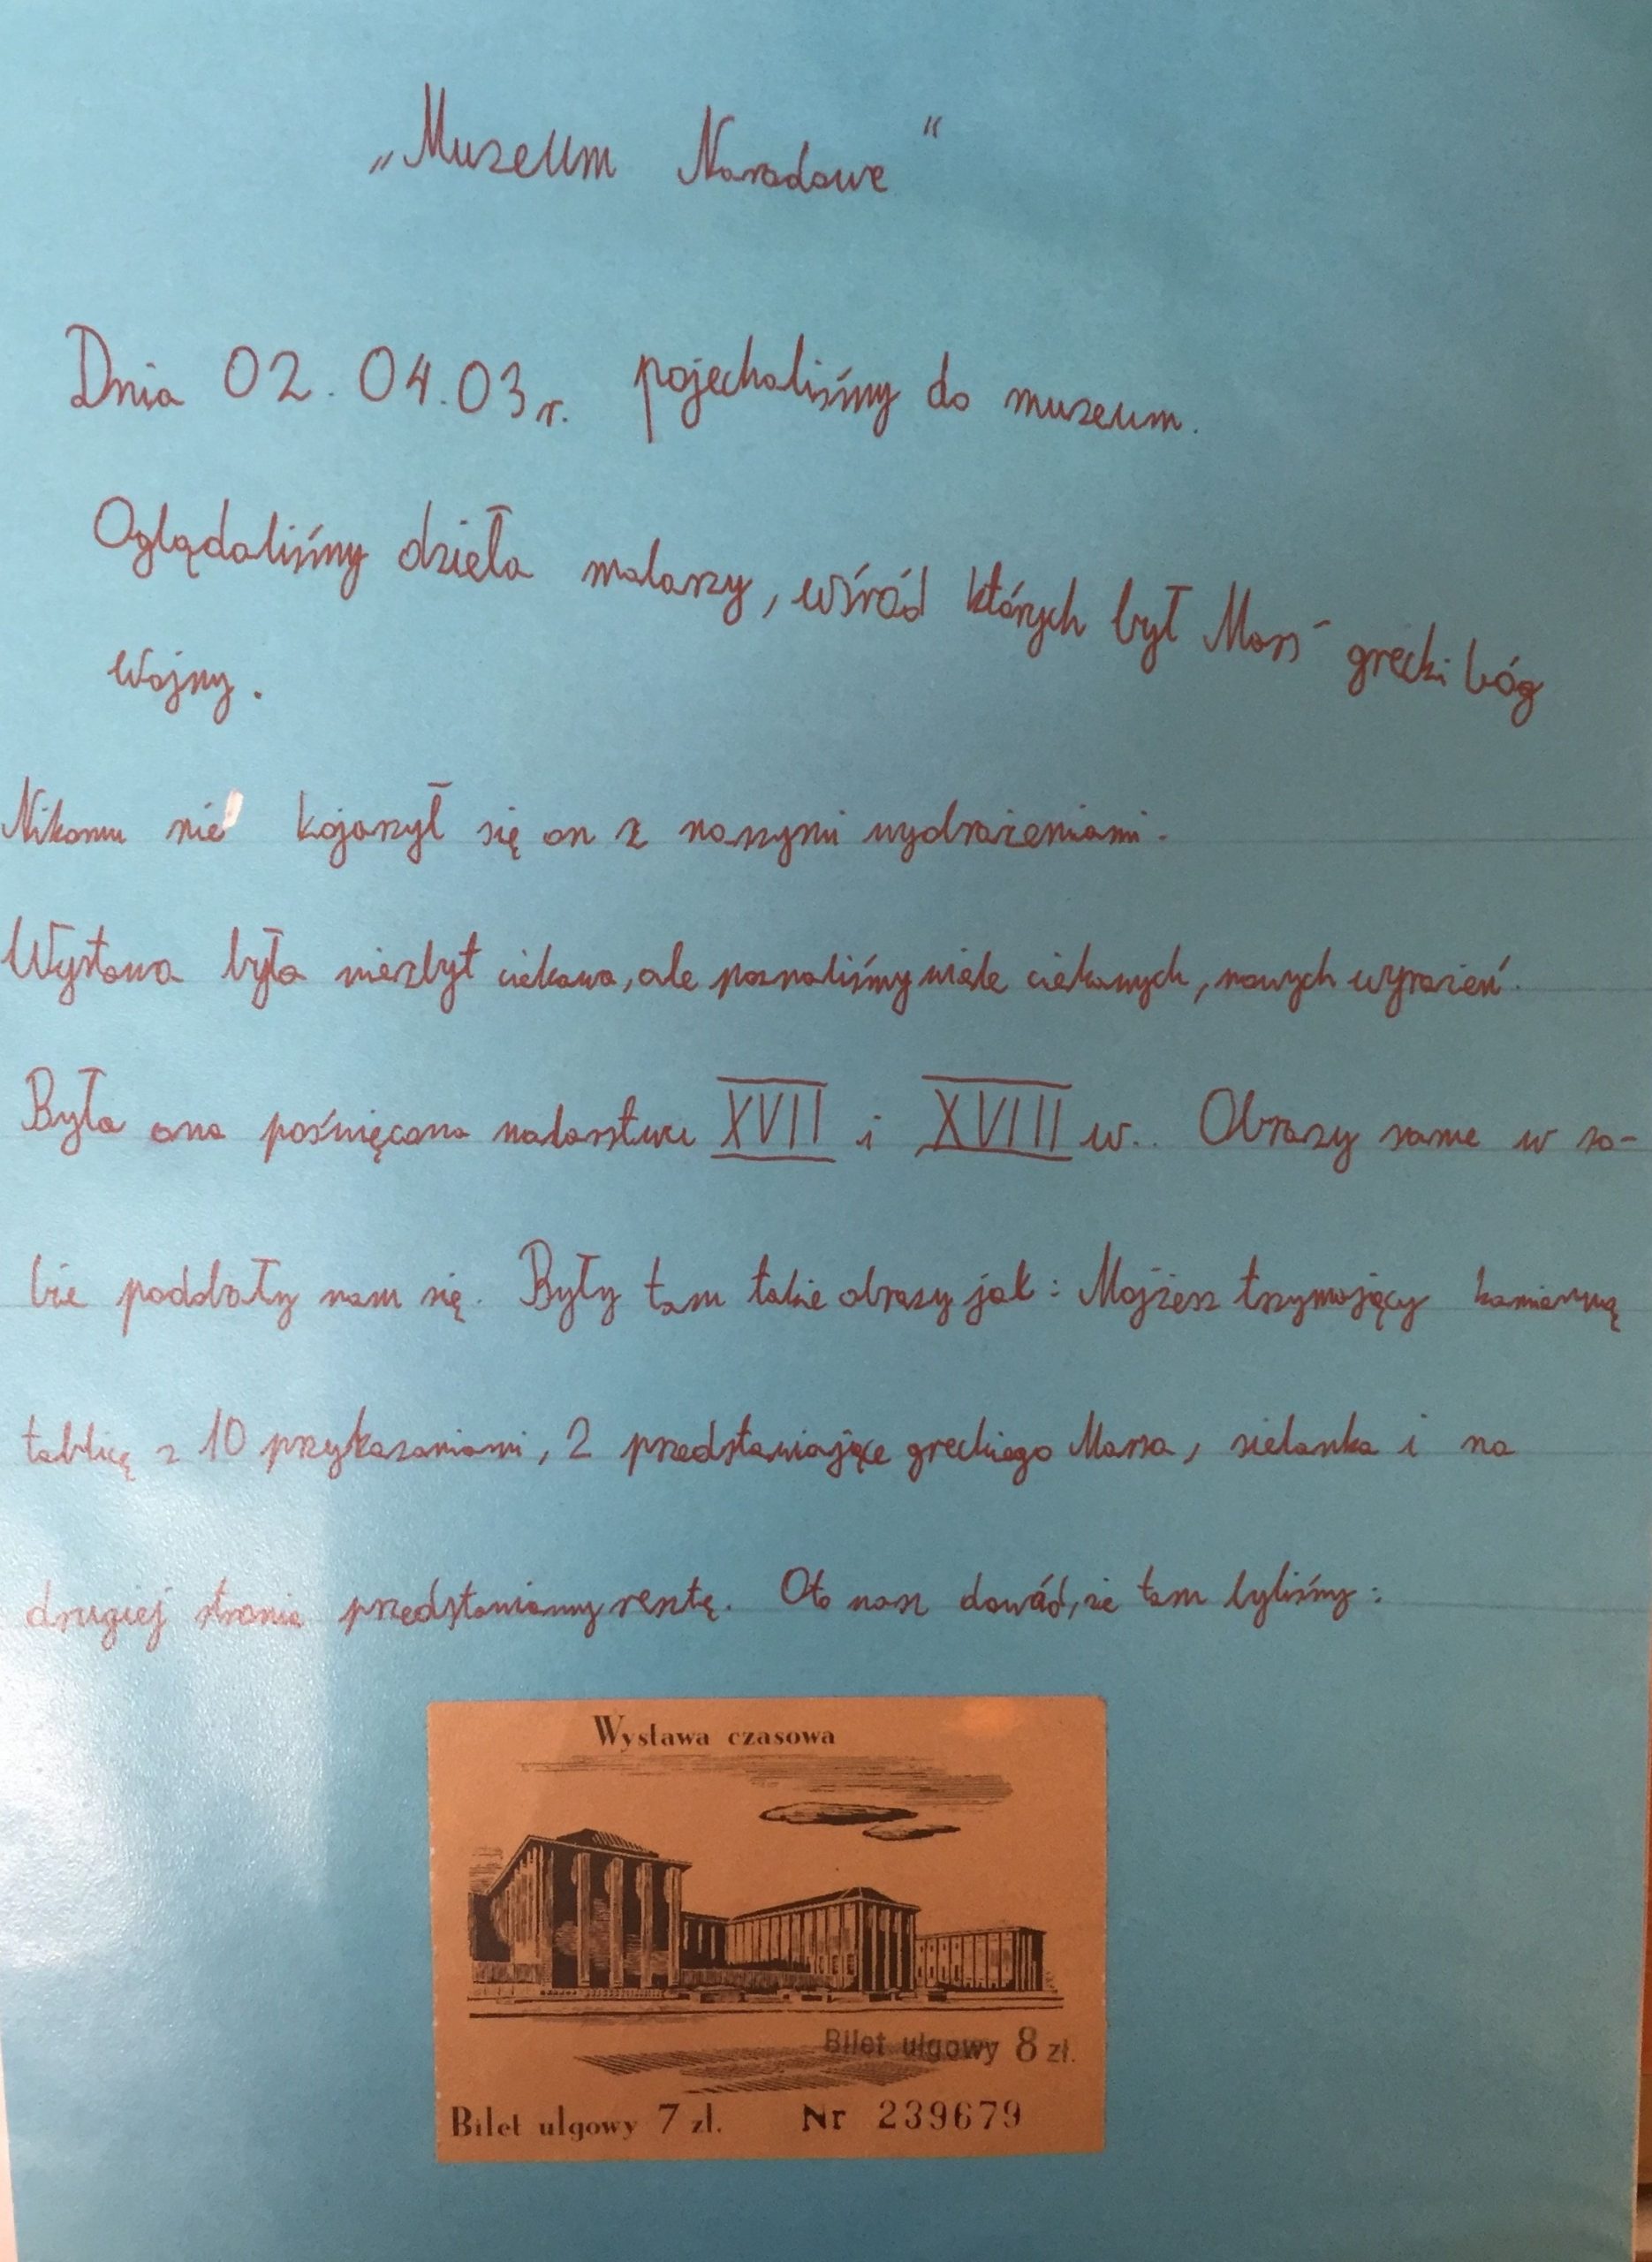 „Muzeum Narodowe“
Dnia 02.04.03r. pojechaliśmy do muzeum.
Oglądaliśmy dzieła malarzy, wśród których był Mars - grecki bóg
wojny.
Nikomu nie kojarzył się on z naszymi wydrażeniami.
Wystawa była niezbyt ciekawa, ale poznaliśmy wiele ciekawych, nowych wyrażeń.
Była ona poświęcona malarstwu XVII i XVIII w.. Obrazy same w so-
bie podobały nam się. Były tam takie obrazy jak: Mojżesz trzymający kamienną
tablicę z 10 przykazaniami, 2 przedstawiające greckiego Marsa, sielanka i na
drugiej stronie przedstawiamy resztę. Oto nasz dowód, że tam byliśmy:
Wystawa czasowa
Bilet ulgowy 8 zł.
Bilet ulgowy 7 zł. Nr 239679